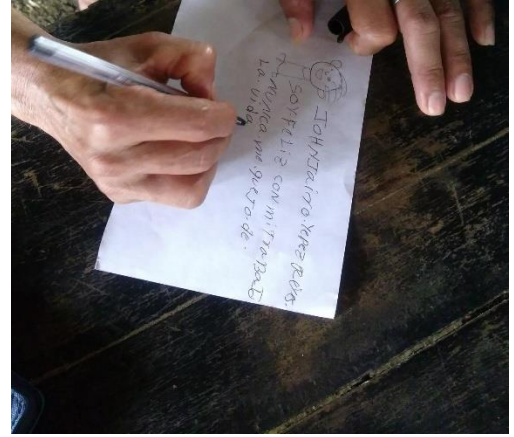 JOHN Jairo. YePez Reyes.
SOY FeLiz CON mi TRaBaJo
Y. NUNCa me. queJo de.
La. vida